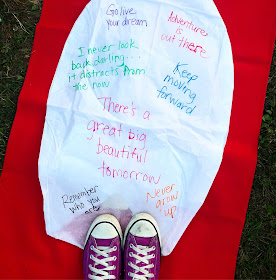 Go live
your dream
Adventure
is out there
I never look
back darling....
it distracts from
the now
Keep
moving
forward
There's a
great big
beautiful
tomorrow
Remember
who you
are
Never
grow
up